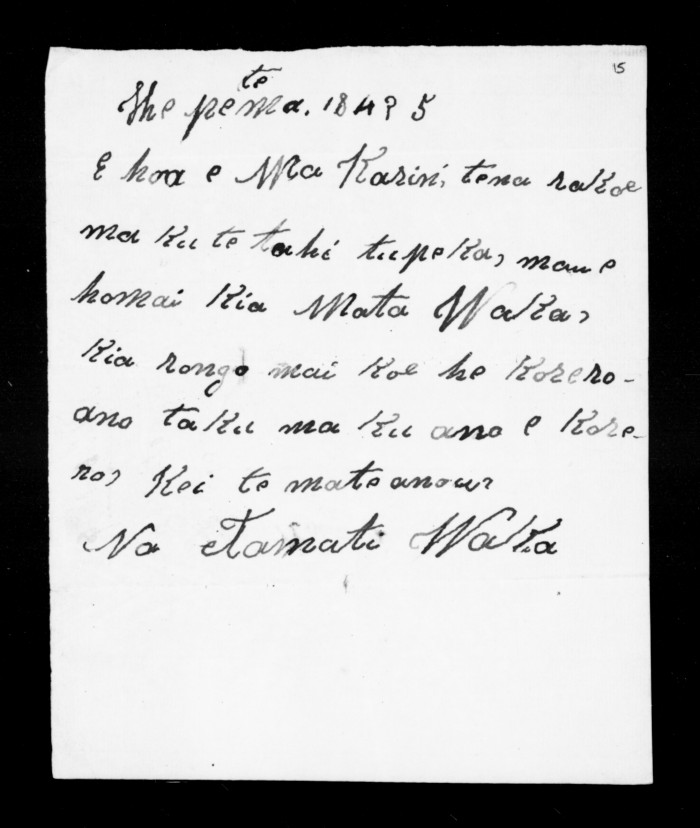 15
Hhe petema. 184? 5
E hoa e Ma Karini, tena rakoe
ma ku te tahi tupeka, mau e
homai Kia Mata Waka,
Kia rongo mai Koe he Korero-
ano taku ma ku ano e Kore-
ro, Kei te mate anoau
Na Tamati Waka